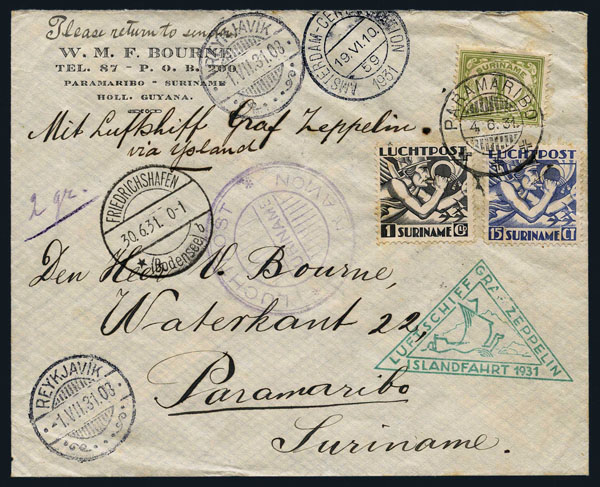 Please return to sender
W. M. F. BOURNE
TEL. 87 - P. O. B. 200
PARAMARIBO - SURINAME
HOLL. GUYANA.
REYKJAVÍK
1.VII.31.03
AMSTERDAM-CENTRAALSTATION
19.VI.10.
59
1931
SURINAME
PARAMARIBO
4.6.31.
Mit Luftschiff Graf Zeppelin
via Ysland
LUCHTPOST
1 Ct
SURINAME
LUCHTPOST
15 SURINAME CT
2 gr.
FRIEDRICHSHAFEN
30.6.31. 0-1
(Bodensee) d
LUCHTPOST
SURINAME
Den Heer V. Bourne,
Waterkant 22,
Paramaribo
Suriname.
LUFTSCHIFF GRAF ZEPPELIN
ISLANDFAHRT 1931
REYKJAVÍK
-1.VII.31.03